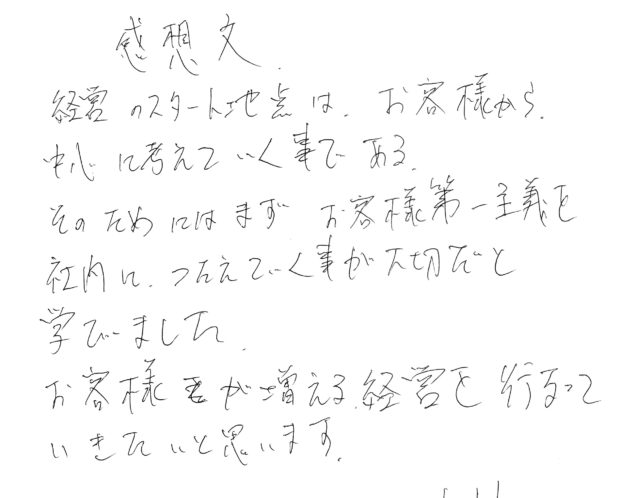 感想文.
経営のスタート地点は、お客様から、
中心に考えていく事である。
そのためにはまず お客様第一主義を
社内に、つたえていく事が大切だと
学びました。
お客様が増える、経営を行なって
いきたいと思います。